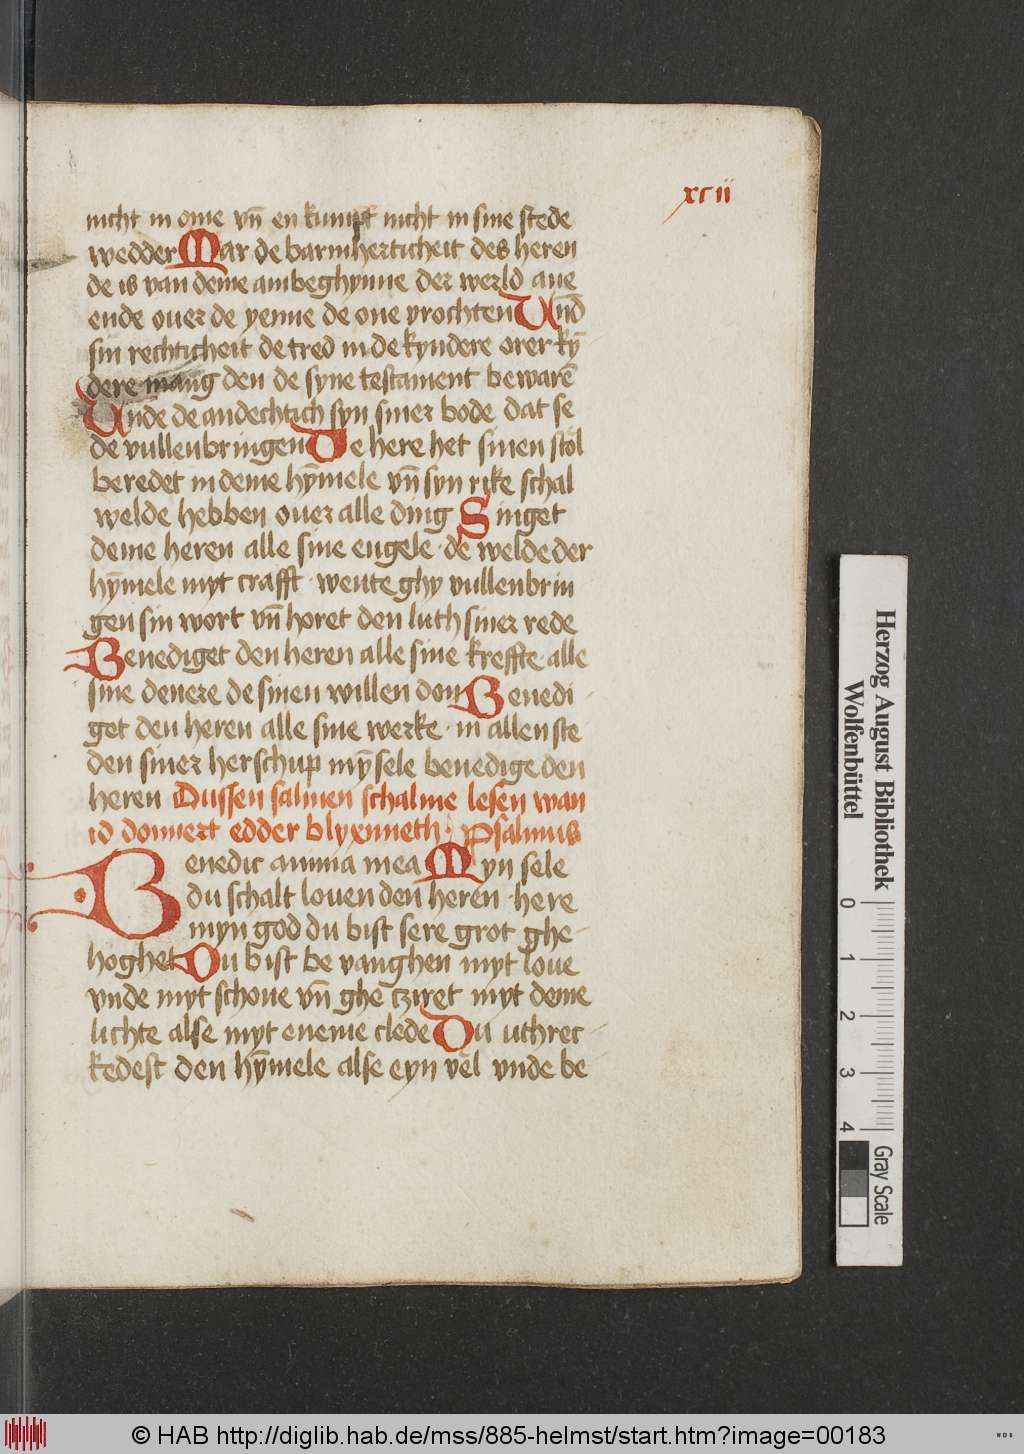 xcii
nicht in ome vn̄ en kumpt nicht in sine stede
wedder Mar de barmherticheit des heren
de is van deme ambeghynne der werld ane
ende ouer de yenne de one vrochten Vnd̄
sin rechticheit de tred in de kyndere orer kȳ
dere mang den de syne testament bewarē
Vnde de andechtich syn siner bode dat se
de vullenbringen De here het sinen stol
beredet in deme hȳmele vn̄ syn rike schal
welde hebben ouer alle ding Singet
deme heren alle sine engele · de welde der
hȳmele myt crafft · wente ghy vullenbrin
gen sin wort vn̄ horet den luth siner rede
Benediget den heren alle sine kreffte · alle
sine denere de sinen willen don Benedi
get den heren alle sine werke · in allen ste
den siner herschup mȳ sele benedige den
heren Dussen salmen schalme lesen wan
id donnert edder blyxenneth · Psalmus
Benedic anima mea Myn sele
du schalt louen den heren · here
myn god du bist sere grot ghe-
hoghet Du bist be vanghen myt loue
vnde myt schone vn̄ ghe tziret myt deme
lichte alse myt eneme clede Du uthrec-
kedest den hȳmele alse eyn vel vnde be
Herzog August Bibliothek
Wolfenbüttel
0 1 2 3 4
Gray Scale
© HAB http://diglib.hab.de/mss/885-helmst/start.htm?image=00183